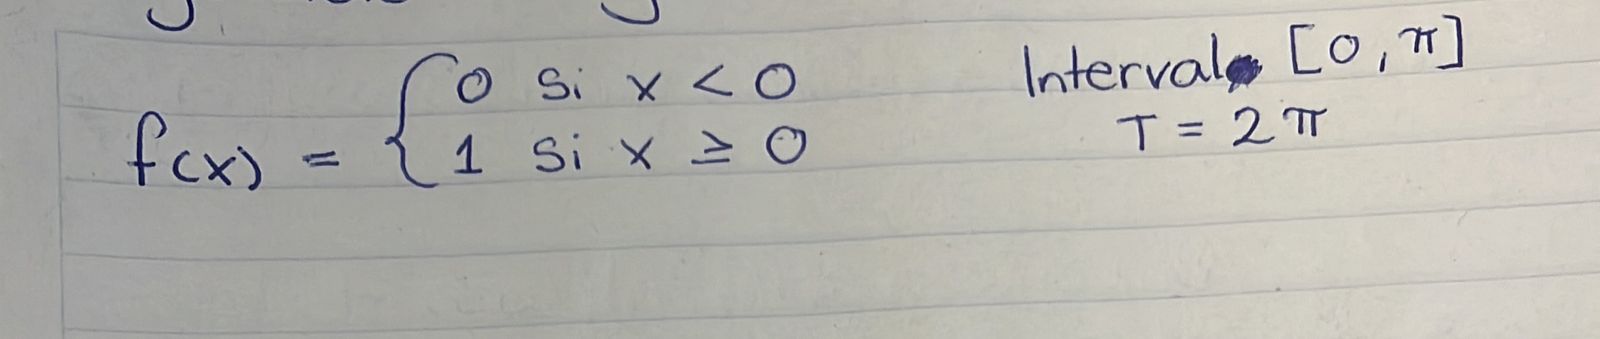 f(x) = { 0 si x < 0
1 si x ≥ 0
Interval [0, π]
T = 2π